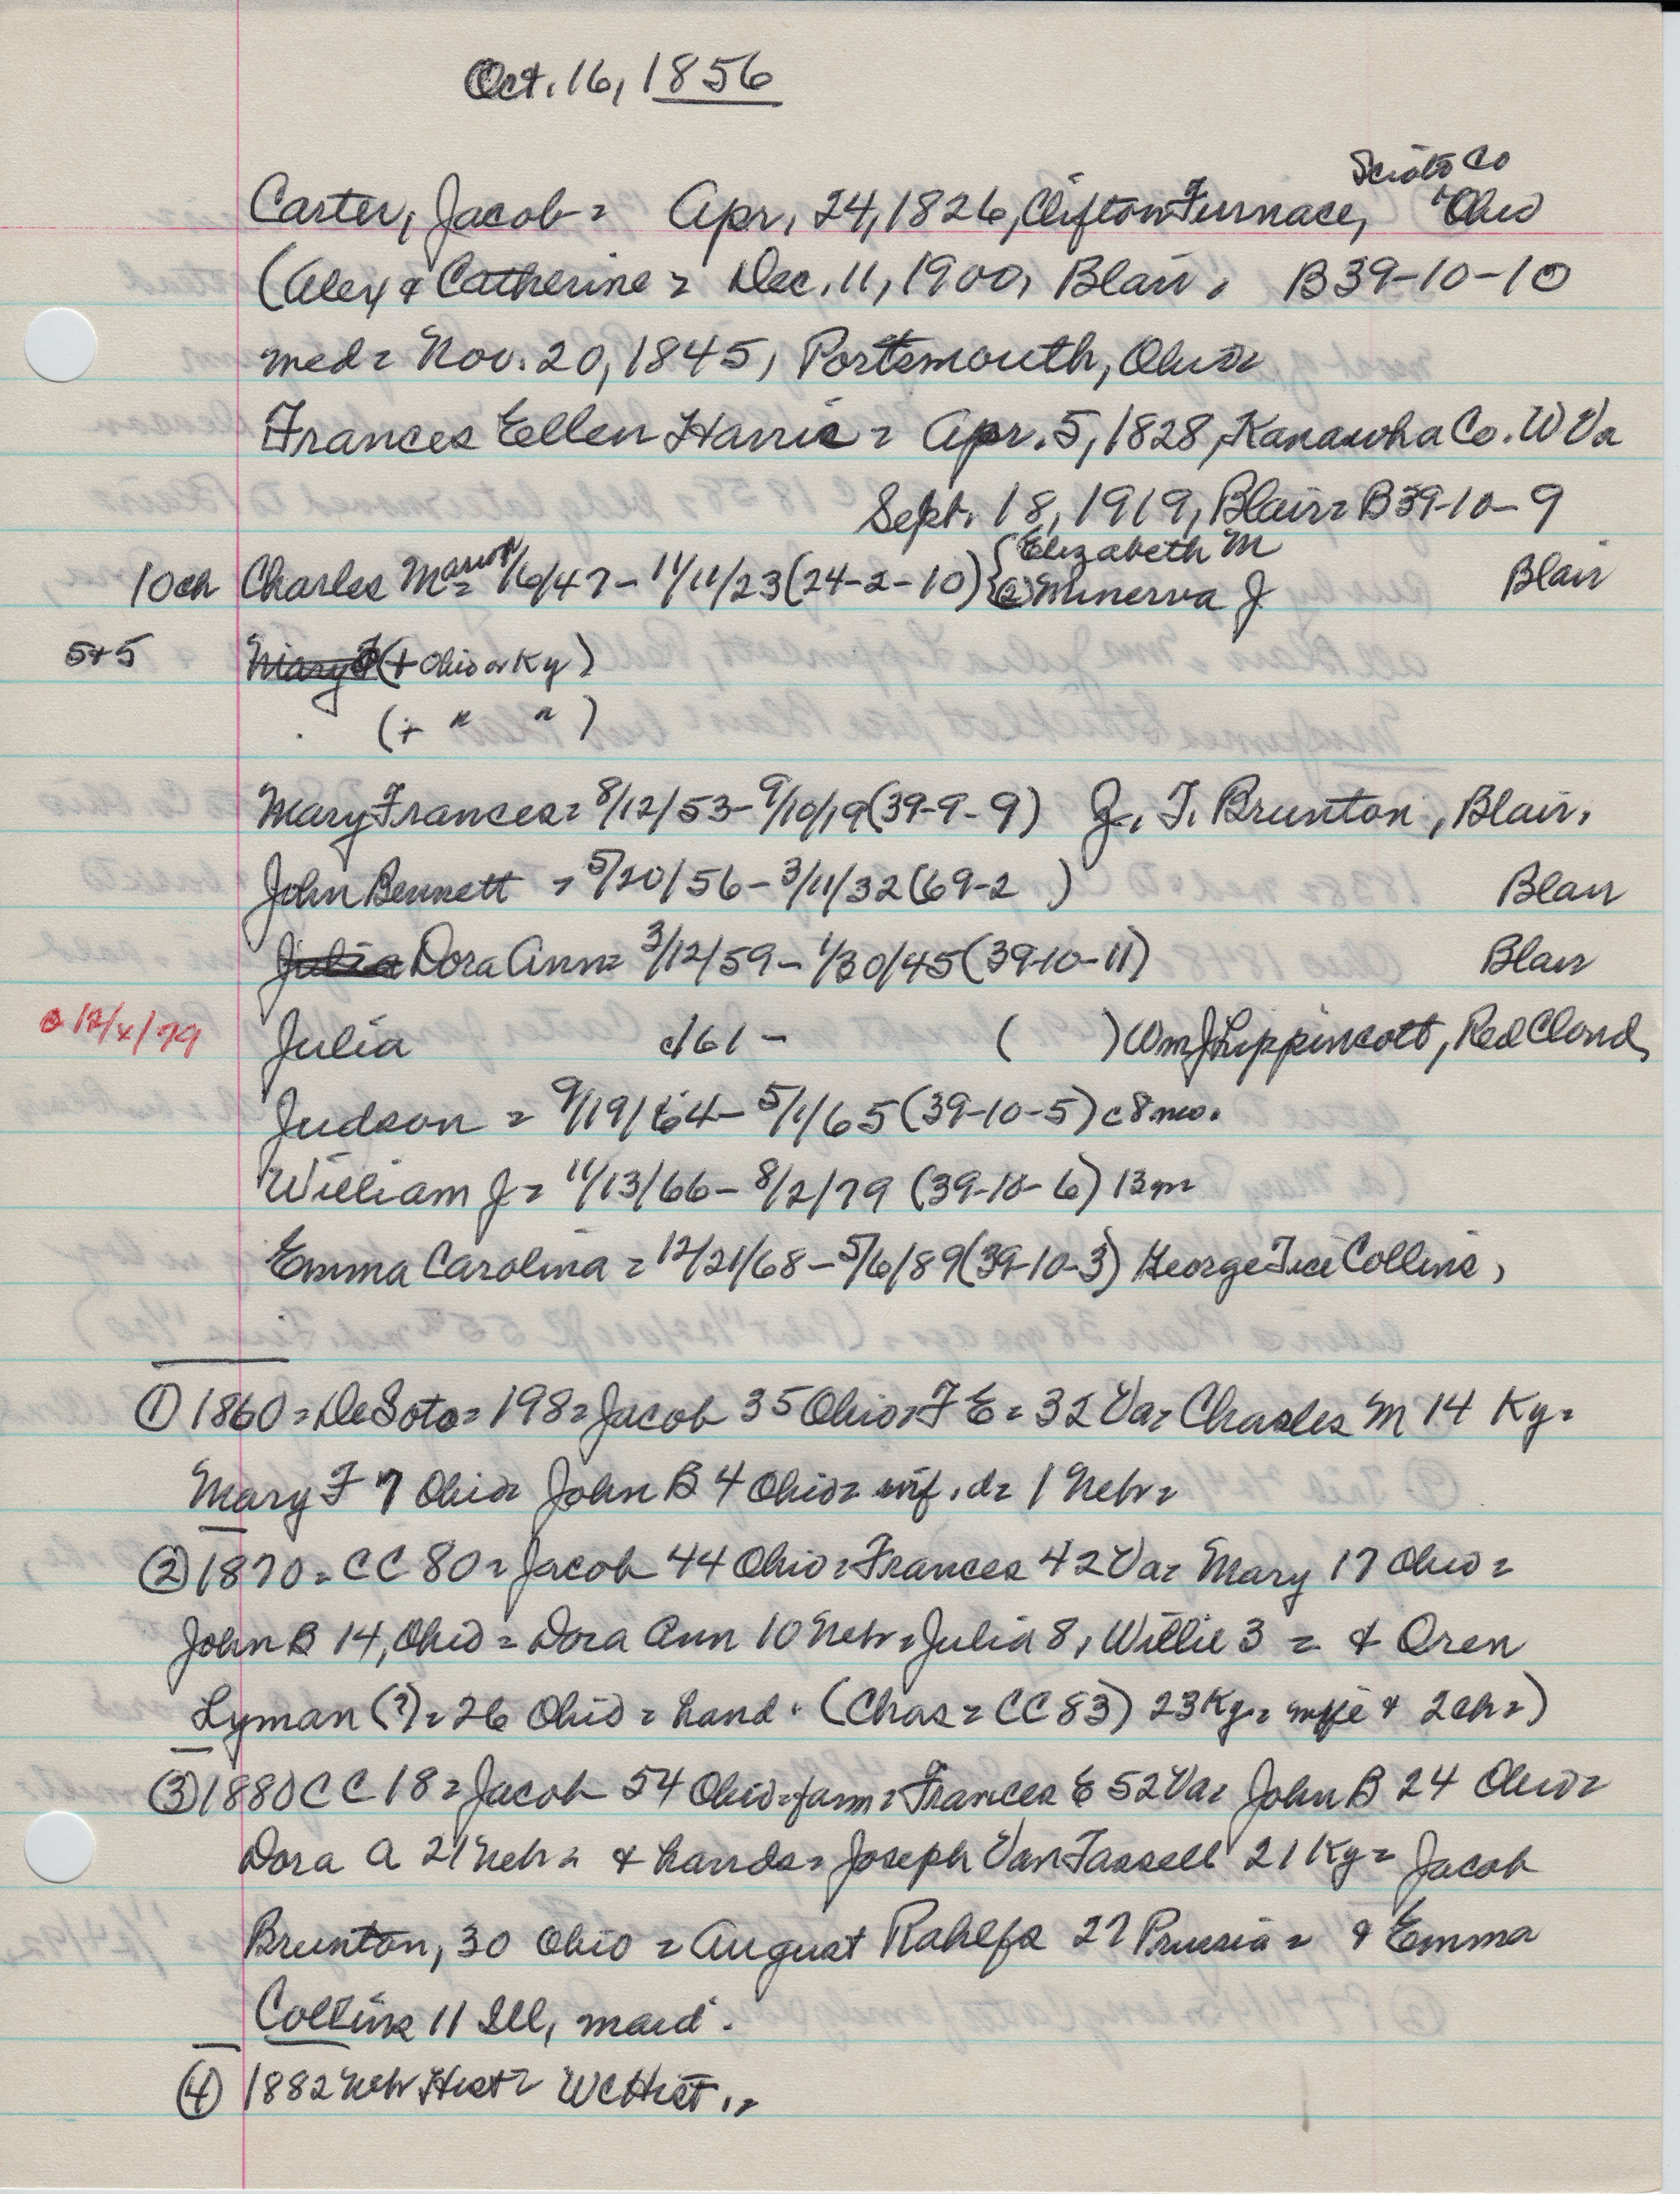 Oct. 16, 1856
Scioto Co
Carter, Jacob = Apr. 24, 1826, Clifton Furnace, Ohio
(Alex & Catherine = Dec. 11, 1900, Blair, B39-10-10
med = Nov. 20, 1845, Portsmouth, Ohio =
Frances Ellen Harris = Apr. 5, 1828, Kanawha Co. W Va
Sept. 18, 1919, Blair = B39-10-9
10ch Charles Marion = 1/6/47 - 11/11/23 (24-2-10) { Elizabeth M
(2) Minerva J Blair
5+5 Mary F (+ Ohio or Ky)
(+ " " )
Mary Frances = 8/12/53 - 9/10/19 (39-9-9) J. T. Brunton, Blair,
John Bennett = 5/20/56 - 3/11/32 (69-2 ) Blair
Julia Dora Ann = 3/12/59 - 1/30/45 (39-10-11) Blair
12/4/79 Julia c/61 - ( ) Wm J Lippincott, Red Cloud,
Judson = 9/19/64 - 5/1/65 (39-10-5) c 8 mo.
William J = 11/13/66 - 8/2/79 (39-10-6) 13 m
Emma Carolina = 12/21/68 - 5/6/89 (39-10-3) George Tice Collins,
① 1860 = DeSoto = 198 = Jacob 35 Ohio = F E = 32 Va = Charles M 14 Ky =
Mary F 7 Ohio = John B 4 Ohio = inf. d = 1 Nebr =
② 1870 = CC 80 = Jacob 44 Ohio = Frances 42 Va = Mary 17 Ohio =
John B 14, Ohio = Dora Ann 10 Nebr = Julia 8, Willie 3 = & Oren
Lyman (?) = 26 Ohio = hand. (Chas = CC 83) 23 Ky = wife & 2 ch =)
③ 1880 CC 18 = Jacob 54 Ohio = farm = Frances E 52 Va = John B 24 Ohio =
Dora A 21 Nebr = & hands = Joseph Van Tassell 21 Ky = Jacob
Brunton, 30 Ohio = August Rahlfs 27 Prussia = & Emma
Collins 11 Ill, maid.
④ 1882 Nebr Hist = WC Hist. =